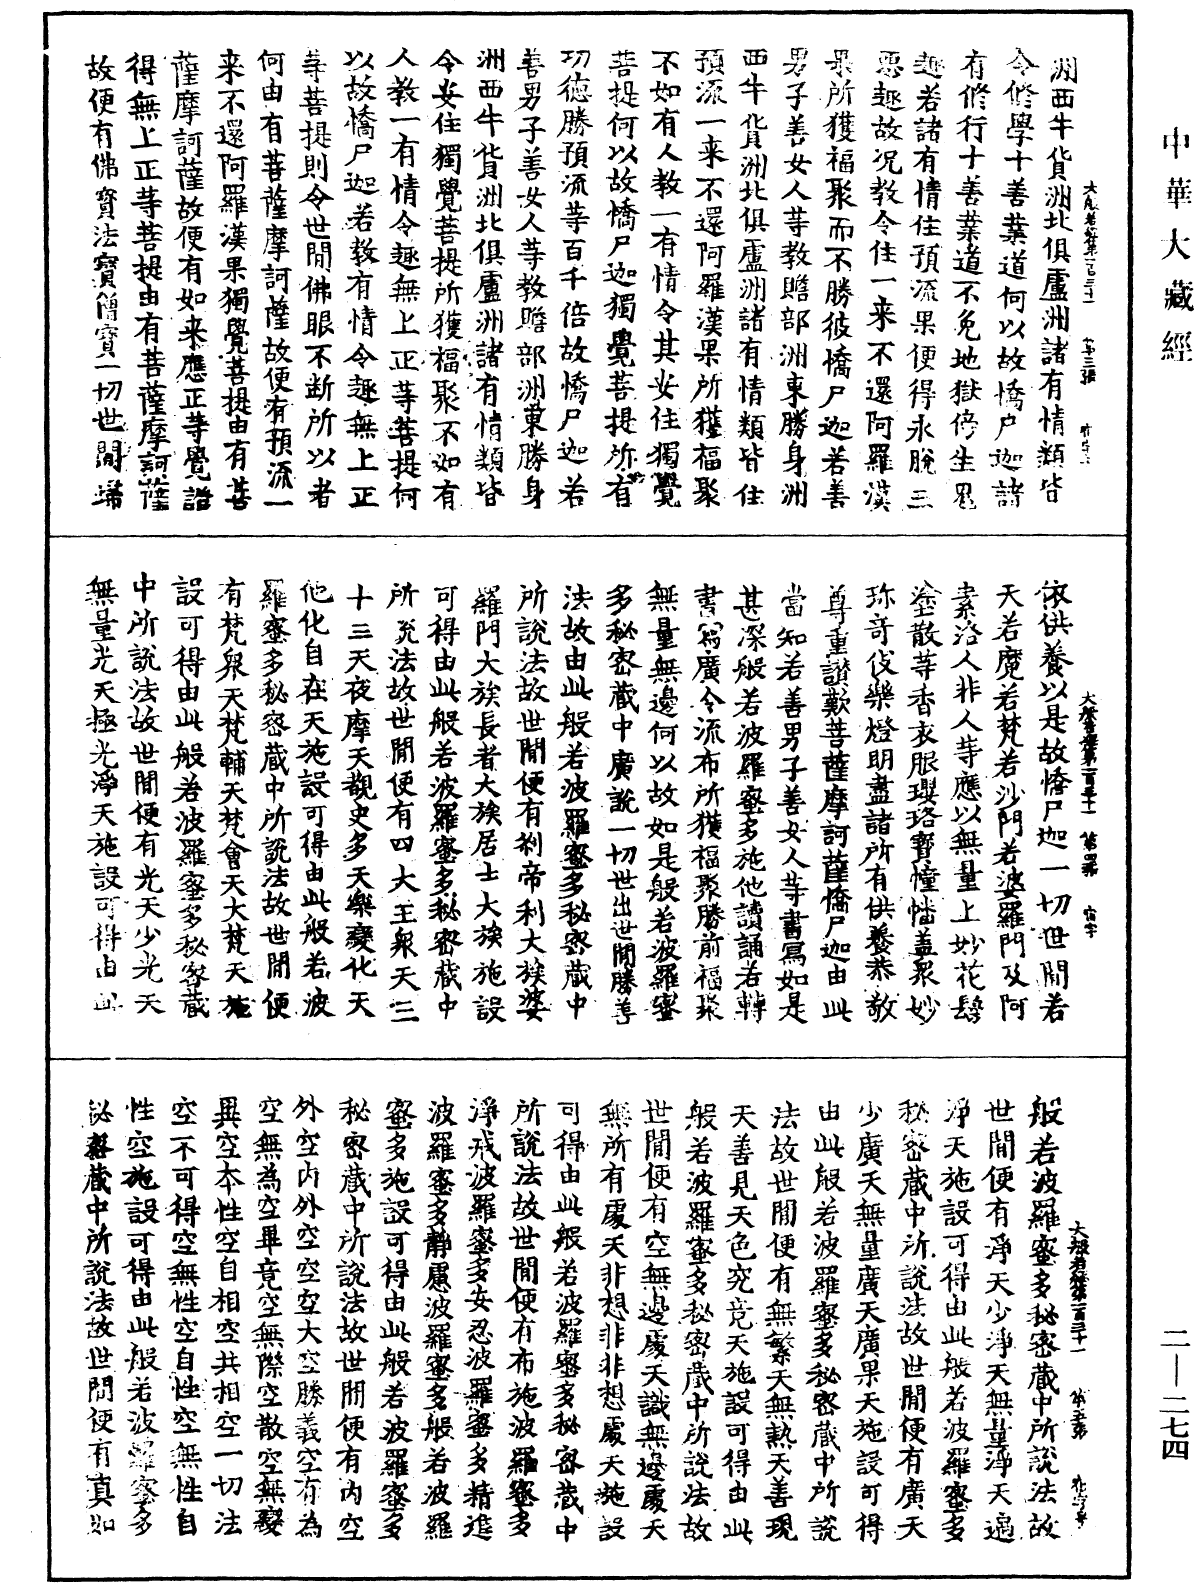 中華大藏經
洲西牛貨洲北俱盧洲諸有情類皆
令修學十善業道何以故憍尸迦諸
有修行十善業道不免地獄傍生鬼
趣若諸有情住預流果便得永脫三
惡趣故况教令住一来不還阿羅漢
果所獲福聚而不勝彼憍尸迦若善
男子善女人等教贍部洲東勝身洲
西牛貨洲北俱盧洲諸有情類皆住
預流一来不還阿羅漢果所獲福聚
不如有人教一有情令其安住獨覺
菩提何以故憍尸迦獨覺菩提所有
功德勝預流等百千倍故憍尸迦若
善男子善女人等教贍部洲東勝身
洲西牛貨洲北俱盧洲諸有情類皆
令安住獨覺菩提所獲福聚不如有
人教一有情令趣無上正等菩提何
以故憍尸迦若教有情令趣無上正
等菩提則令世間佛眼不断所以者
何由有菩薩摩訶薩故便有預流一
来不還阿羅漢果獨覺菩提由有菩
薩摩訶薩故便有如来應正等覺證
得無上正等菩提由有菩薩摩訶薩
故便有佛寶法寶僧寶一切世間歸
大般若經第一百三十一 第三張
依供養以是故憍尸迦一切世間若
天若魔若梵若沙門若婆羅門及阿
素洛人非人等應以無量上妙花鬘
塗散等香衣服瓔珞寶幢幡蓋衆妙
珎奇伎樂燈明盡諸所有供養恭敬
尊重讚歎菩薩摩訶薩憍尸迦由此
當知若善男子善女人等書寫如是
甚深般若波羅蜜多施他讀誦若轉
書寫廣令流布所獲福聚勝前福聚
無量無邊何以故如是般若波羅蜜
多秘密藏中廣說一切世出世間勝善
法故由此般若波羅蜜多秘密藏中
所說法故世間便有剎帝利大族婆
羅門大族長者大族居士大族施設
可得由此般若波羅蜜多秘密藏中
所說法故世間便有四大王衆天三
十三天夜摩天覩史多天樂變化天
他化自在天施設可得由此般若波
羅蜜多秘密藏中所說法故世間便
有梵衆天梵輔天梵會天大梵天施
設可得由此般若波羅蜜多秘密藏
中所說法故世間便有光天少光天
無量光天極光淨天施設可得由此
大般若經第一百三十一 第四張 宿字
般若波羅蜜多秘密藏中所說法故
世間便有淨天少淨天無量淨天遍
淨天施設可得由此般若波羅蜜多
秘密藏中所說法故世間便有廣天
少廣天無量廣天廣果天施設可得
由此般若波羅蜜多秘密藏中所說
法故世間便有無繁天無熱天善現
天善見天色究竟天施設可得由此
般若波羅蜜多秘密藏中所說法故
世間便有空無邊處天識無邊處天
無所有處天非想非非想處天施設
可得由此般若波羅蜜多秘密藏中
所說法故世間便有布施波羅蜜多
淨戒波羅蜜多安忍波羅蜜多精進
波羅蜜多靜慮波羅蜜多般若波羅
蜜多施設可得由此般若波羅蜜多
秘密藏中所說法故世間便有內空
外空內外空空空大空勝義空有為
空無為空畢竟空無際空散空無變
異空本性空自相空共相空一切法
空不可得空無性空自性空無性自
性空施設可得由此般若波羅蜜多
秘密藏中所說法故世間便有真如
大般若經第一百三十一 第五張
二—二七四